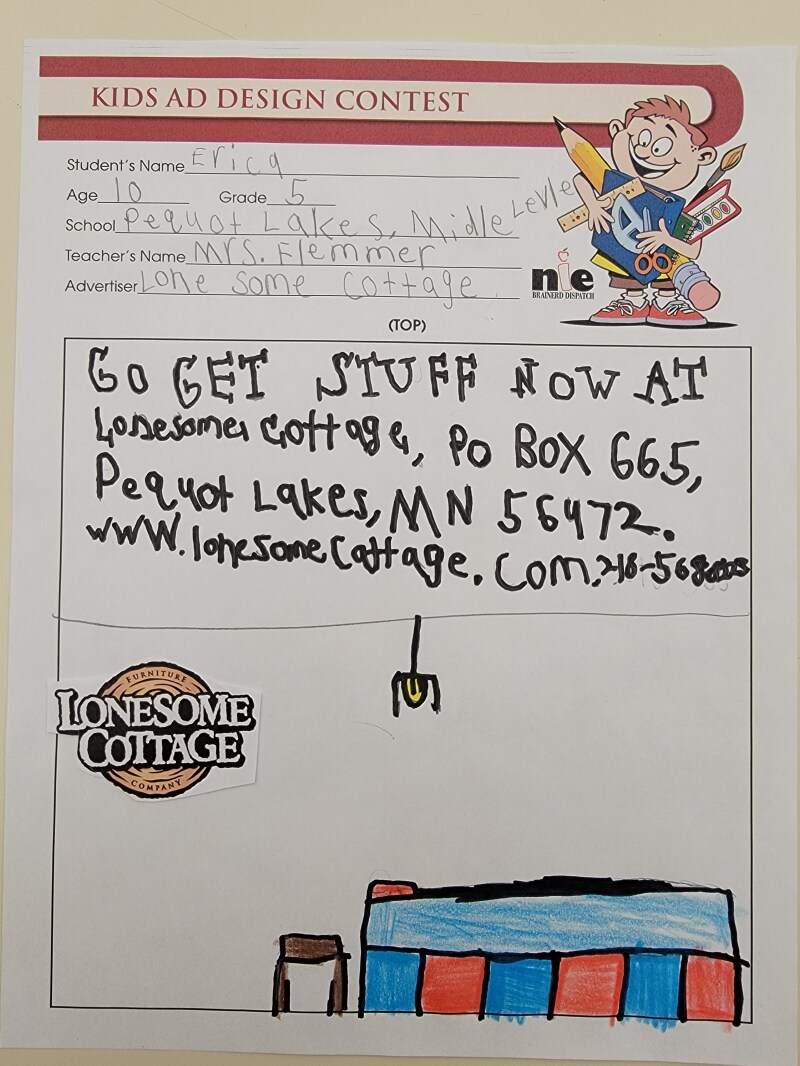 KIDS AD DESIGN CONTEST
Student's Name Erica
Age 10 Grade 5
School Pequot Lakes, Midle Levle
Teacher's Name Mrs. Flemmer
Advertiser Lone some cottage
nie
BRAINERD DISPATCH
(TOP)
GO GET STUFF NOW AT
Lonesome Cottage, PO BOX 665,
Pequot Lakes, MN 56472.
WWW.lonesomeCattage.Com.
FURNITURE
LONESOME
COTTAGE
COMPANY